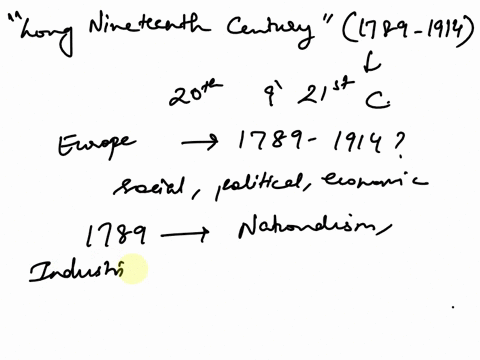 "Long Nineteenth Century" (1789-1914)
↓
20th & 21st C.
Europe → 1789 - 1914?
social, political, economic
1789 → Nationalism,
Industri